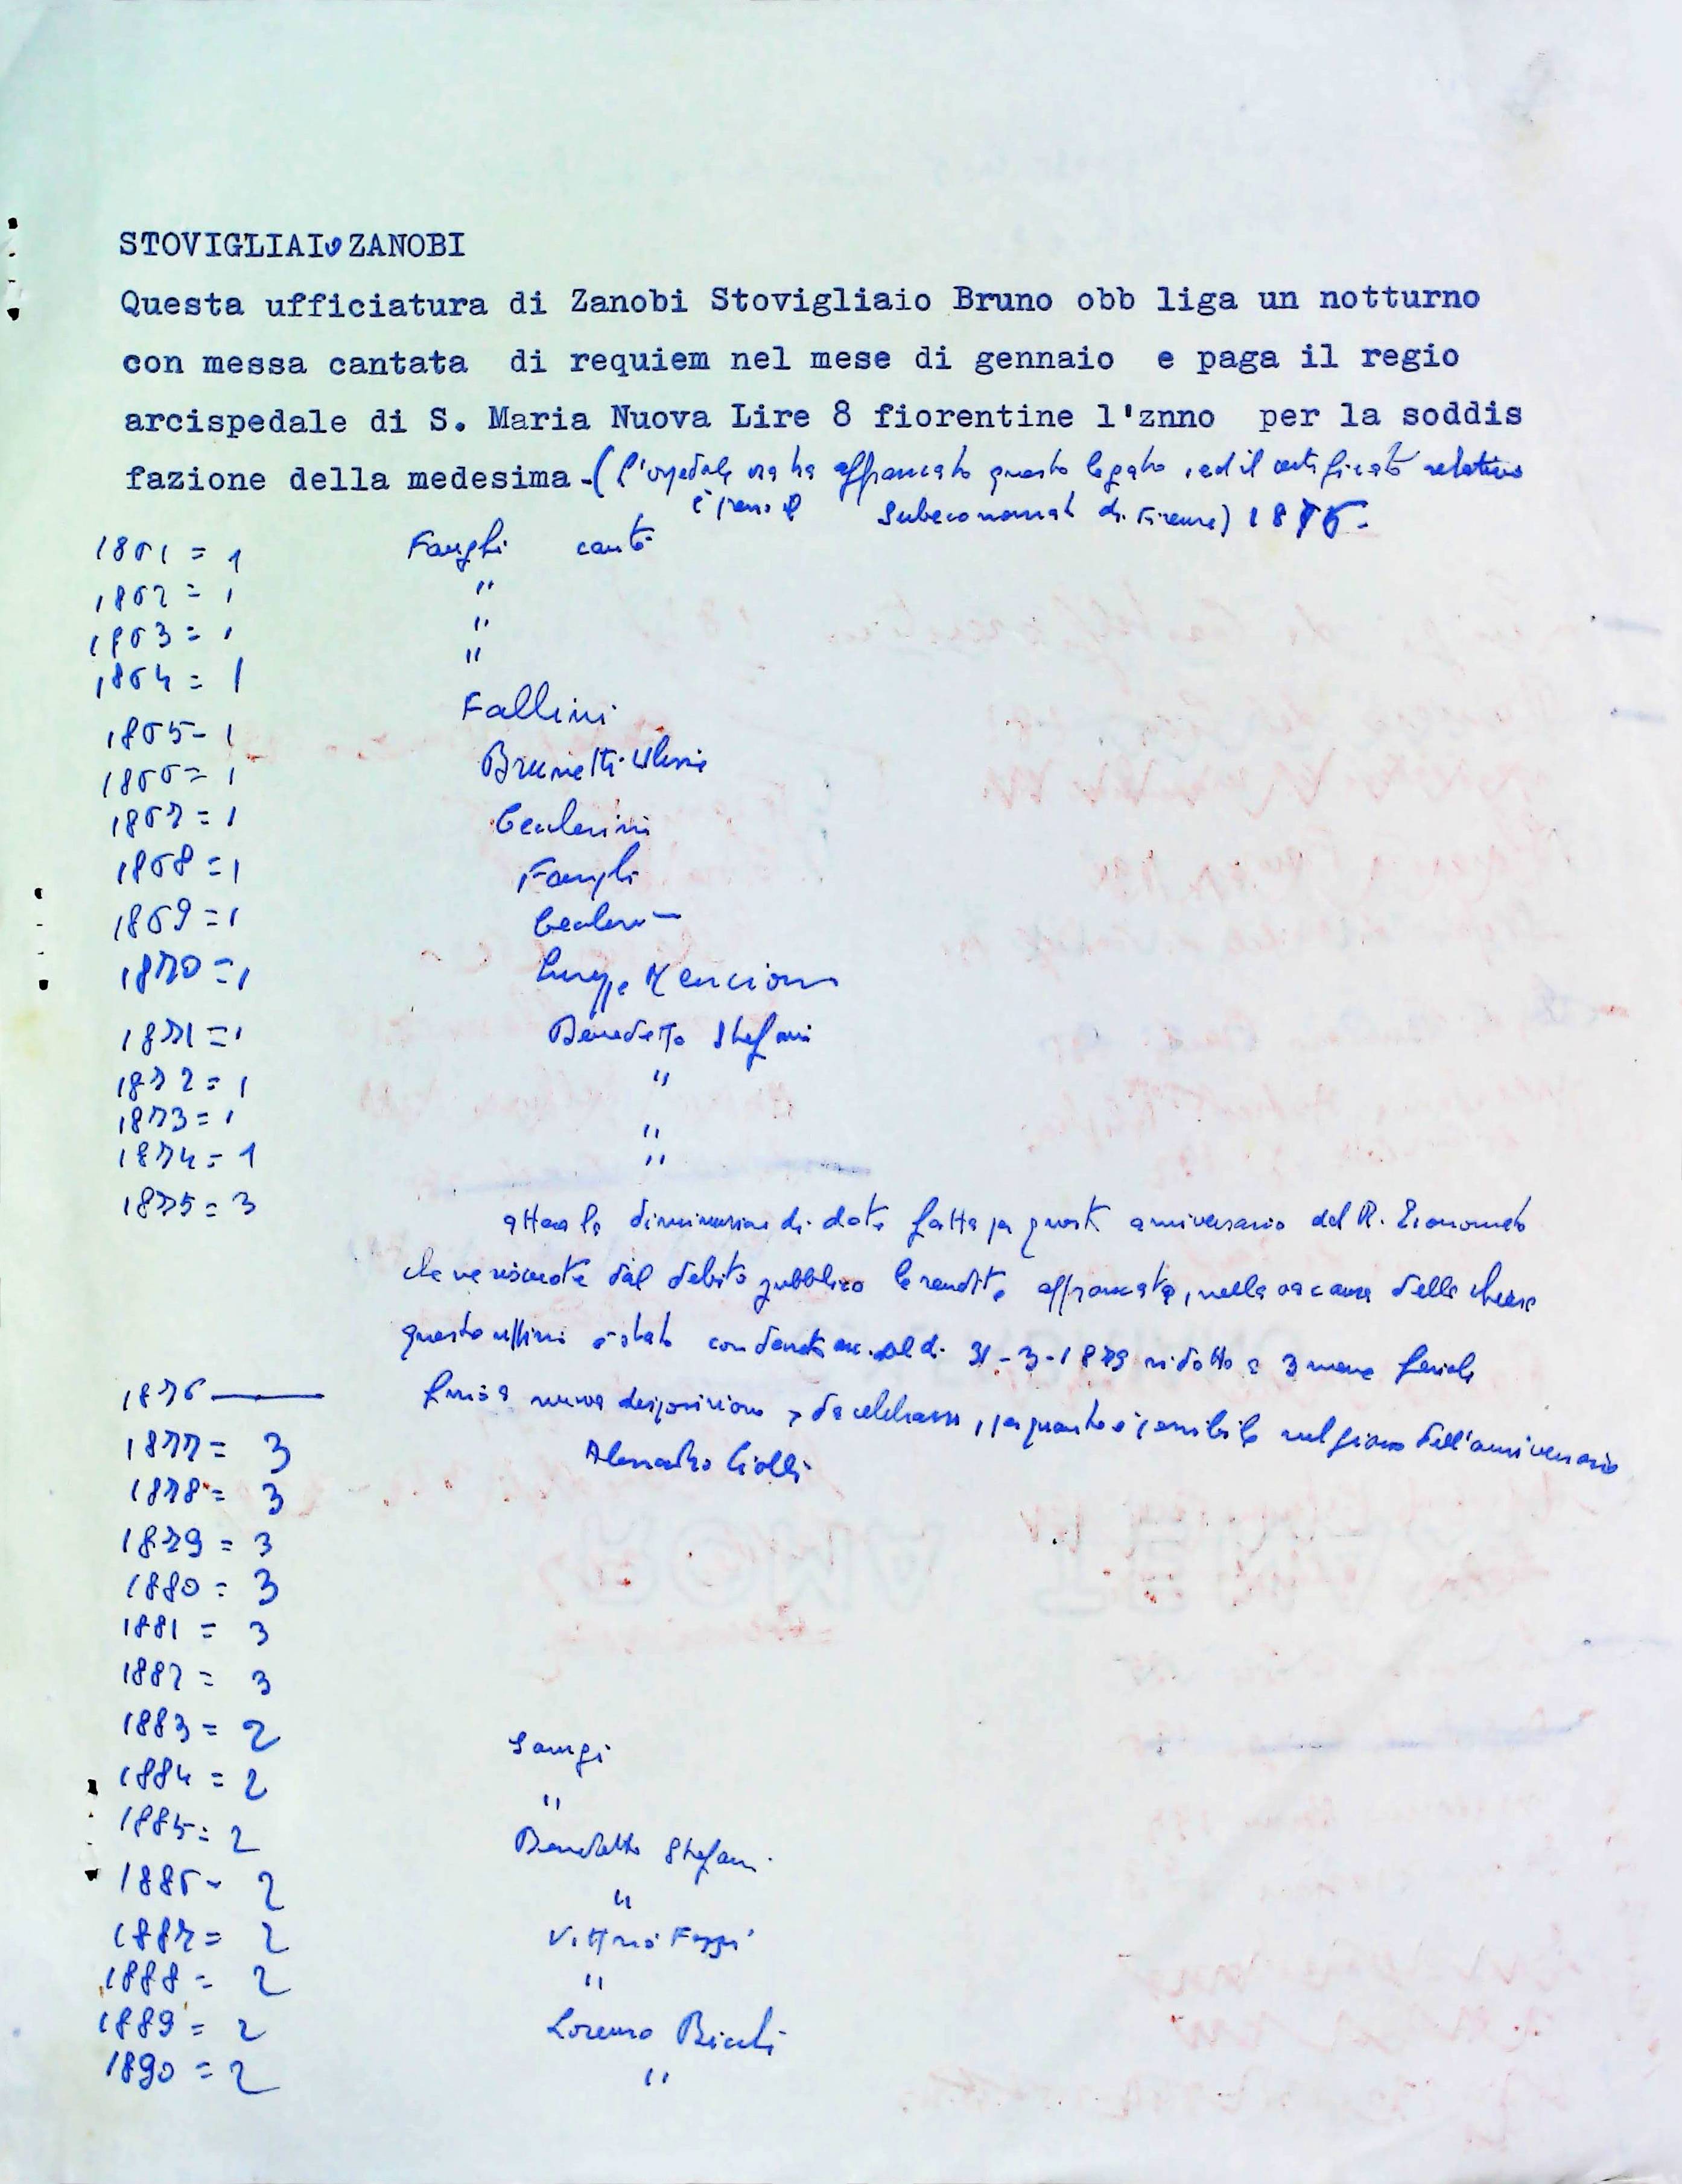 STOVIGLIAIO ZANOBI
Questa ufficiatura di Zanobi Stovigliaio Bruno obb liga un notturno
con messa cantata di requiem nel mese di gennaio e paga il regio
arcispedale di S. Maria Nuova Lire 8 fiorentine l'znno per la soddis
fazione della medesima - (l'ospedale ora ha affrancato questo legato, ed il certificato relativo
è presso il Subeconomato di Firenze) 1876.
1861 = 1 Fanghi
1862 = 1 "
1863 = 1 "
1864 = 1 "
1865 - 1 Fallini
1866 = 1 Brunetti
1867 = 1
1868 = 1 Fanghi
1869 = 1
1870 = 1 Mencioni
1871 = 1 Benedetto Stefani
1872 = 1 "
1873 = 1 "
1874 = 1 "
1875 = 3
attesa la diminuzione di dote fatta per questo anniversario dal R. Economato
che ne riscuote dal debito pubblico la rendita affrancata, nella vacanza della chiesa
questo uffizio è stato 31-3-1879 ridotto a 3 messe
1876 — fino a nuova disposizione da celebrarsi, per quanto è possibile nel giorno dell'anniversario
1877 = 3 Alessandro Ciolli
1878 = 3
1879 = 3
1880 = 3
1881 = 3
1882 = 3
1883 = 2
1884 = 2 "
1885 = 2 Benedetto Stefani
1886 - 2 "
1887 = 2 Vittorio
1888 = 2 "
1889 = 2 Lorenzo
1890 = 2 "